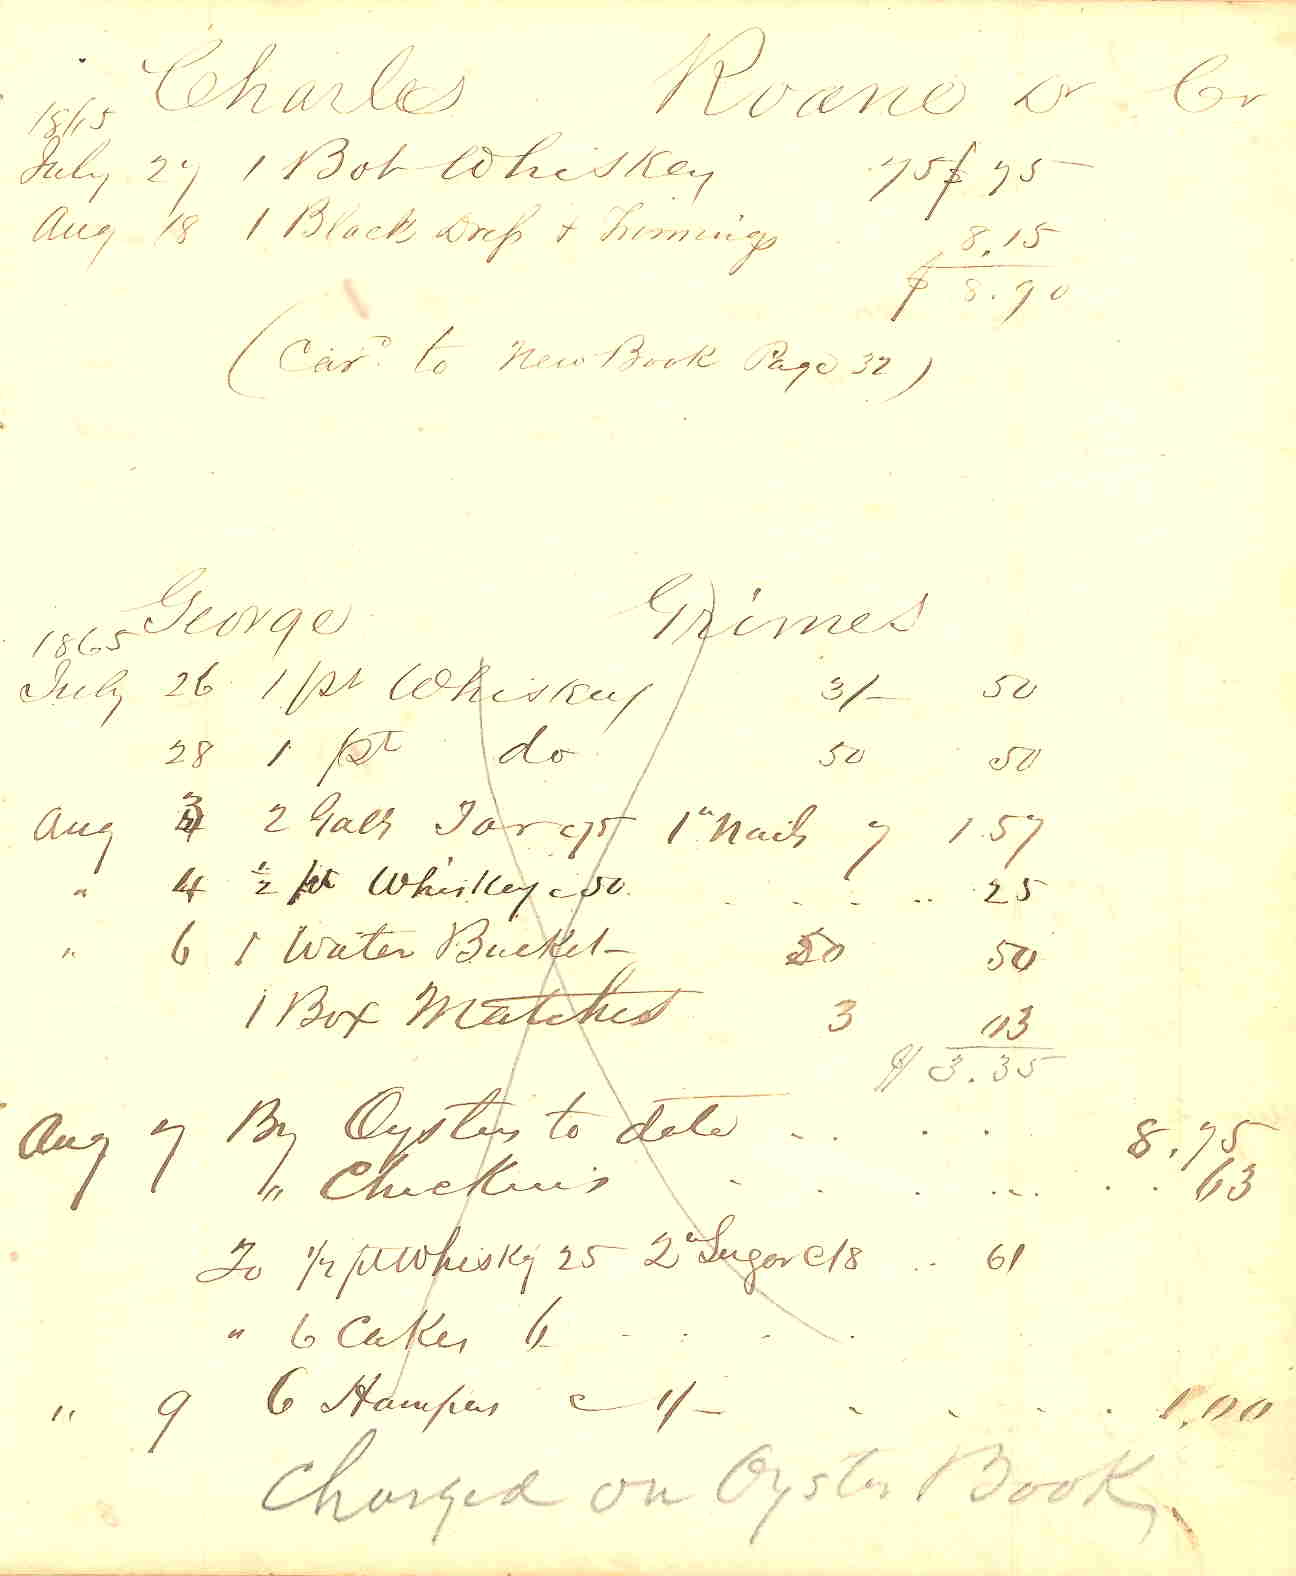 Charles Roane Dr Cr
1865
July 27 1 Bot Whiskey 75 $ 75
Aug 18 1 Black Dress + Trimmings 8.15
$ 8.90
(Card. to New Book Page 32)
George Grimes
1865
July 26 1 pt Whiskey 3/- 50
28 1 pt do 50 50
Aug 3 2 Galls Tar c75 1" Nails 7 1.57
" 4 ½ pt Whiskey c50 . . . . 25
" 6 1 Water Bucket 50 50
1 Box Matches 3 03
$ 3.35
Aug 7 By Oysters to date . . . . 8.75
" Chickens . . . . . . 63
To 1/2 pt Whisky 25 2" Sugar c18 .. 61
" 6 Cakes 6 . . . .
" 9 6 Hampers c 1/- . . . . 1.00
Charged on Oyster Book